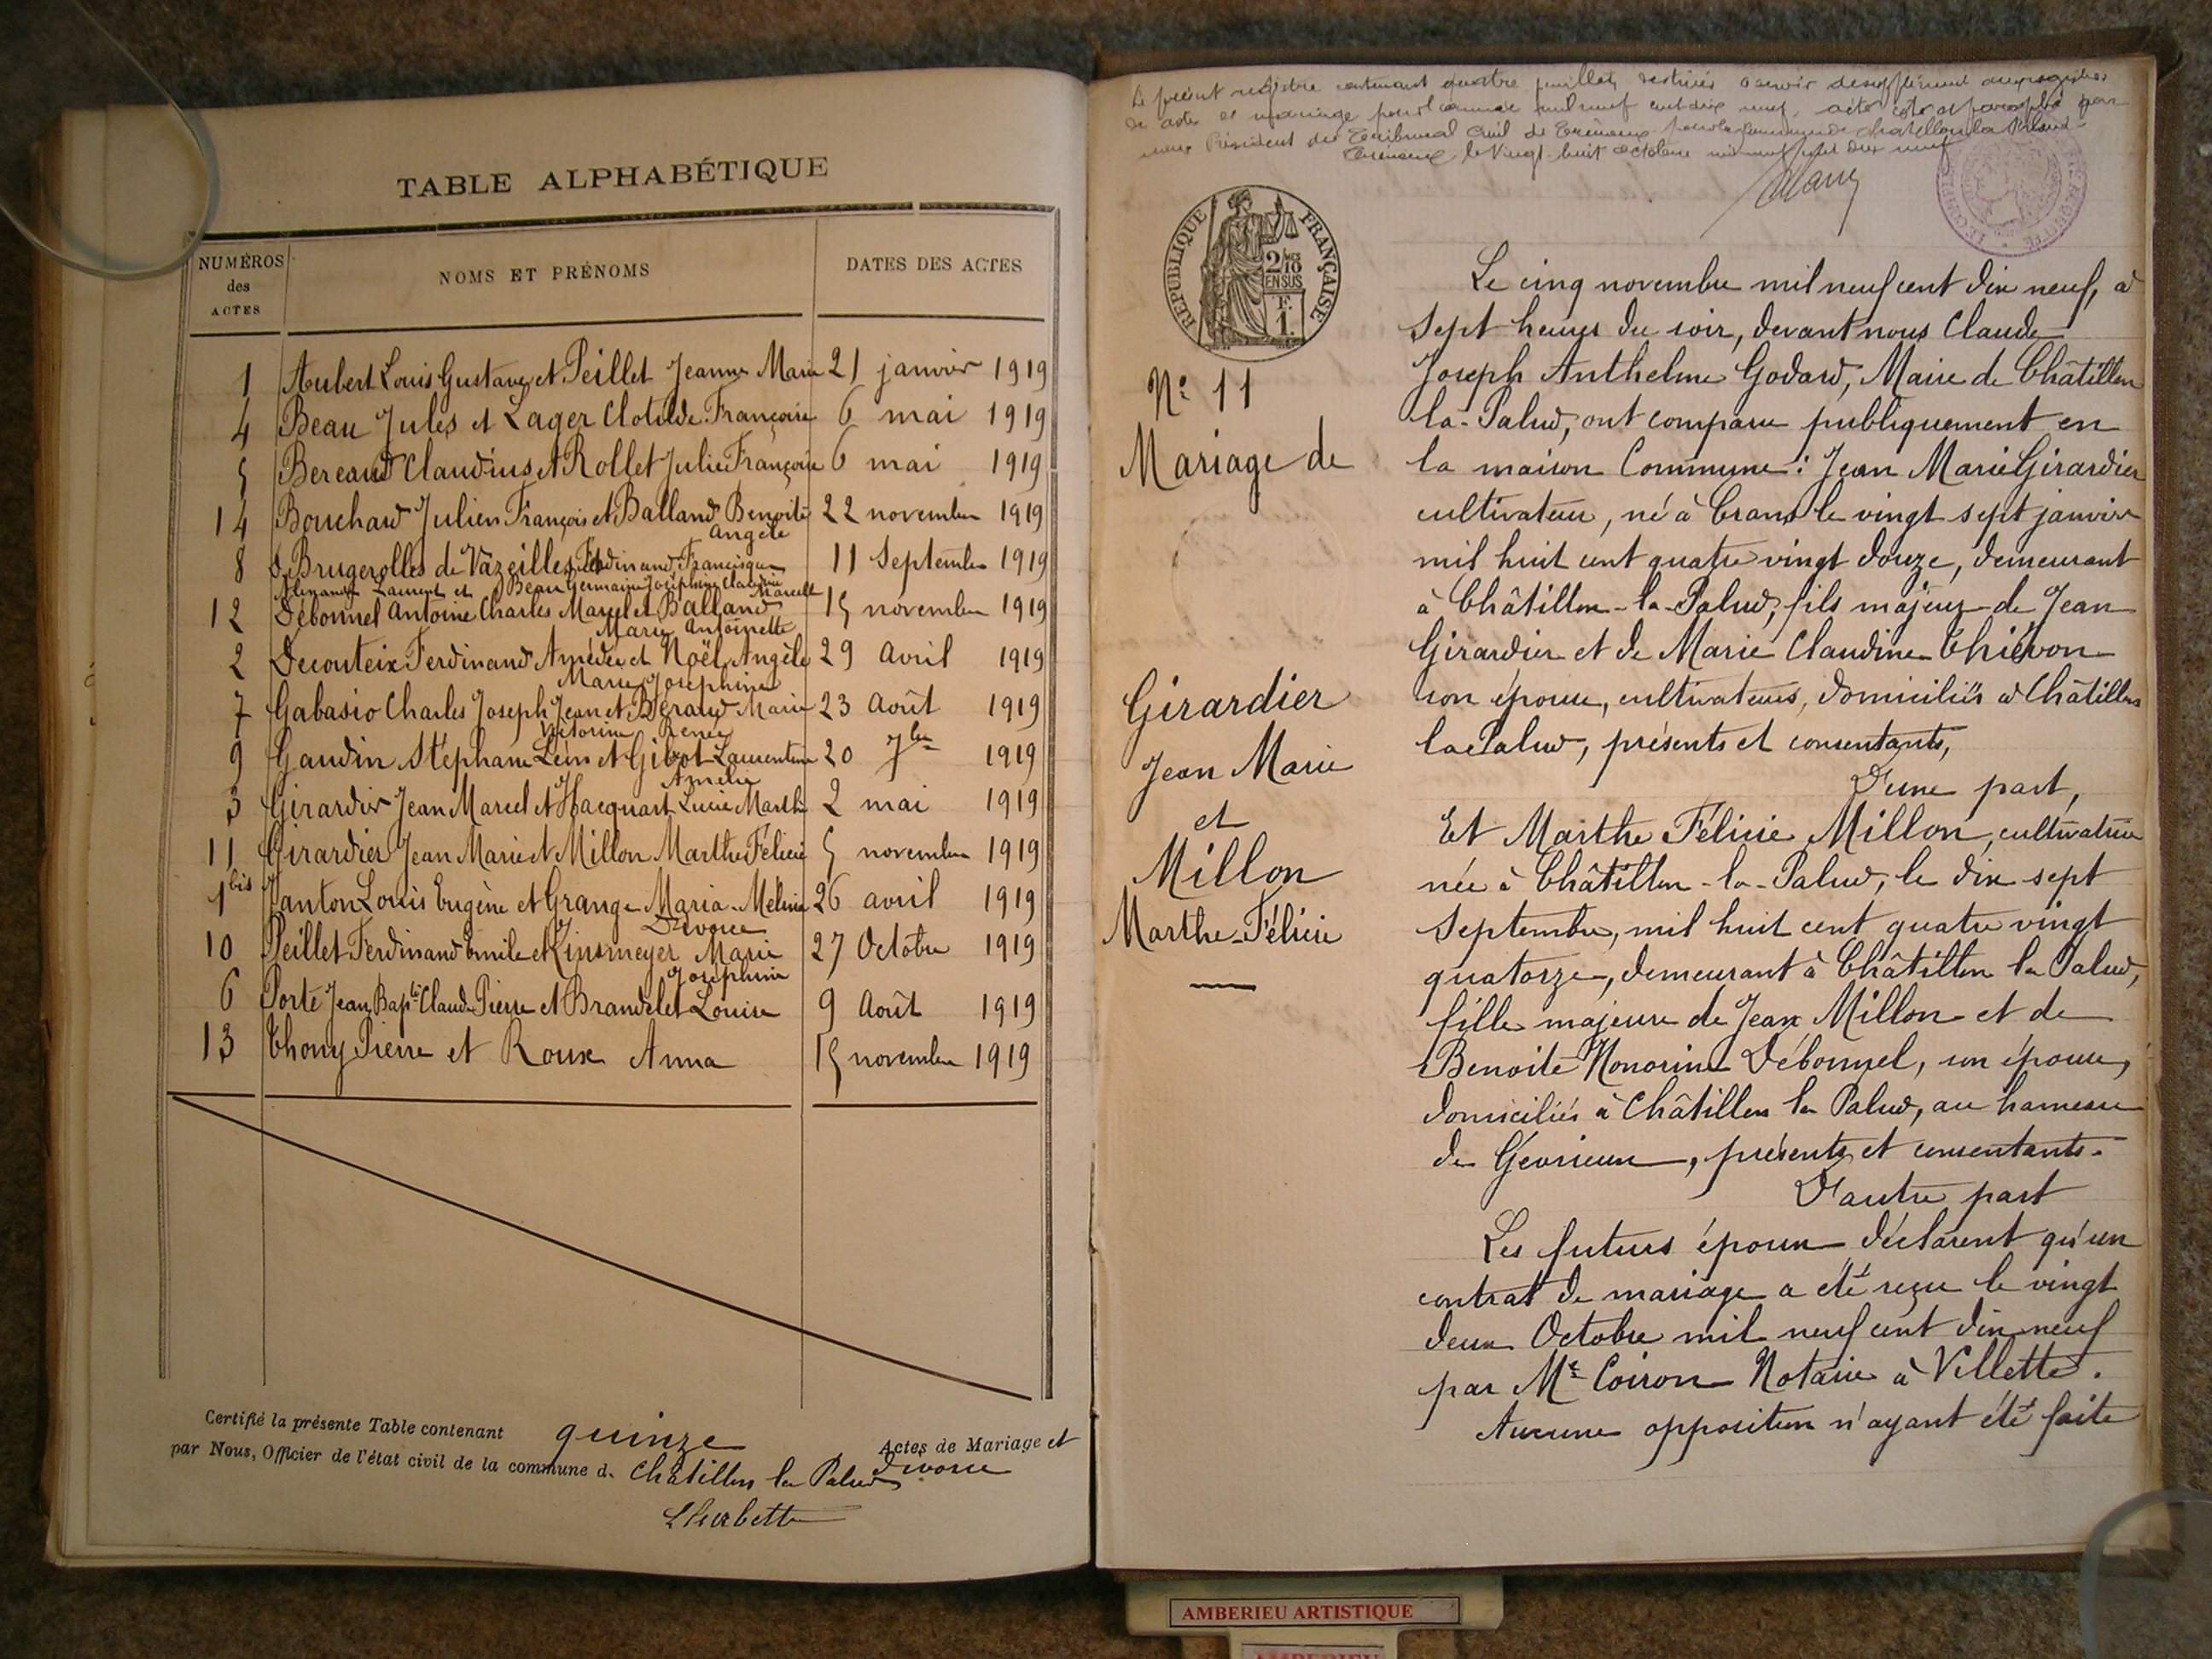 TABLE ALPHABÉTIQUE
NUMÉROS des ACTES
NOMS ET PRÉNOMS
DATES DES ACTES
1 Aubert Louis Gustave et Peillet Jeanne Marie 21 janvier 1919
4 Beau Jules et Lager Clotilde Françoise 6 mai 1919
5 Bereaud Claudius et Rollet Julie Françoise 6 mai 1919
14 Bouchard Julien François et Balland Benoite 22 novembre 1919
Angèle
8 de Brugerolles de Vazeilles Ferdinand Francisque 11 Septembre 1919
Laurent et Beau Germaine Joséphine Claudine
12 Débonnel Antoine Charles Marcel et Balland Marcelle 15 novembre 1919
Marie Antoinette
2 Decouteix Ferdinand Amédée et Noël Angèle 29 Avril 1919
Marie Joséphine
7 Gabasio Charles Joseph Jean et Beraud Marie 23 Août 1919
Victorine Renée
9 Gaudin Stéphane Léon et Gibot Laurentine 20 7bre 1919
Amélie
3 Girardier Jean Marcel et Hacquart Lucie Marthe 2 mai 1919
11 Girardier Jean Marie et Millon Marthe Félicie 5 novembre 1919
1bis Janton Louis Eugène et Grange Maria-Mélina 26 avril 1919
Divorce
10 Peillet Ferdinand Emile et Kinsmeyer Marie 27 Octobre 1919
Joséphine
6 Porte Jean Bapte Claude Pierre et Brandelet Louise 9 Août 1919
13 Thony Pierre et Roux Anna 15 novembre 1919
Certifié la présente Table contenant quinze Actes de Mariage et
par Nous, Officier de l'état civil de la commune d. Châtillon la Palud divorce
Lherbette
Le présent registre contenant quatre feuillets destinés a servir de supplément aux registres
de actes de mariage pour l'année mil neuf cent dix neuf, a été coté et paraphé par
nous Président du Tribunal Civil de Trévoux pour la commune de Chatillon la Palud
Trévoux le Vingt huit octobre mil neuf cent dix neuf
RÉPUBLIQUE FRANÇAISE
2/10
EN SUS
F.
1.
Le cinq novembre mil neuf cent dix neuf, à
sept heures du soir, devant nous Claude
Joseph Anthelme Godard, Maire de Châtillon
la-Palud, ont comparu publiquement en
la maison Commune: Jean Marie Girardier
cultivateur, né à Crans le vingt sept janvier
mil huit cent quatre vingt douze, demeurant
à Châtillon-la-Palud, fils majeur de Jean
Girardier et de Marie Claudine Thiévon
son épouse, cultivateurs, domiciliés à Châtillon
la Palud, présents et consentants,
D'une part,
Et Marthe Félicie Millon, cultivatrice
née à Châtillon-la-Palud, le dix sept
Septembre, mil huit cent quatre vingt
quatorze, demeurant à Châtillon la Palud,
fille majeure de Jean Millon et de
Benoite Honorine Débonnel, son épouse,
domiciliés à Châtillon la Palud, au hameau
de Gévrieux, présents et consentants.
D'autre part
Les futurs époux déclarent qu'un
contrat de mariage a été reçu le vingt
deux Octobre mil neuf cent dix neuf
par Me Coiron Notaire à Villette.
Aucune opposition n'ayant été faite
No 11
Mariage de
Girardier
Jean Marie
et
Millon
Marthe-Félicie
AMBERIEU ARTISTIQUE
AMBERIEU